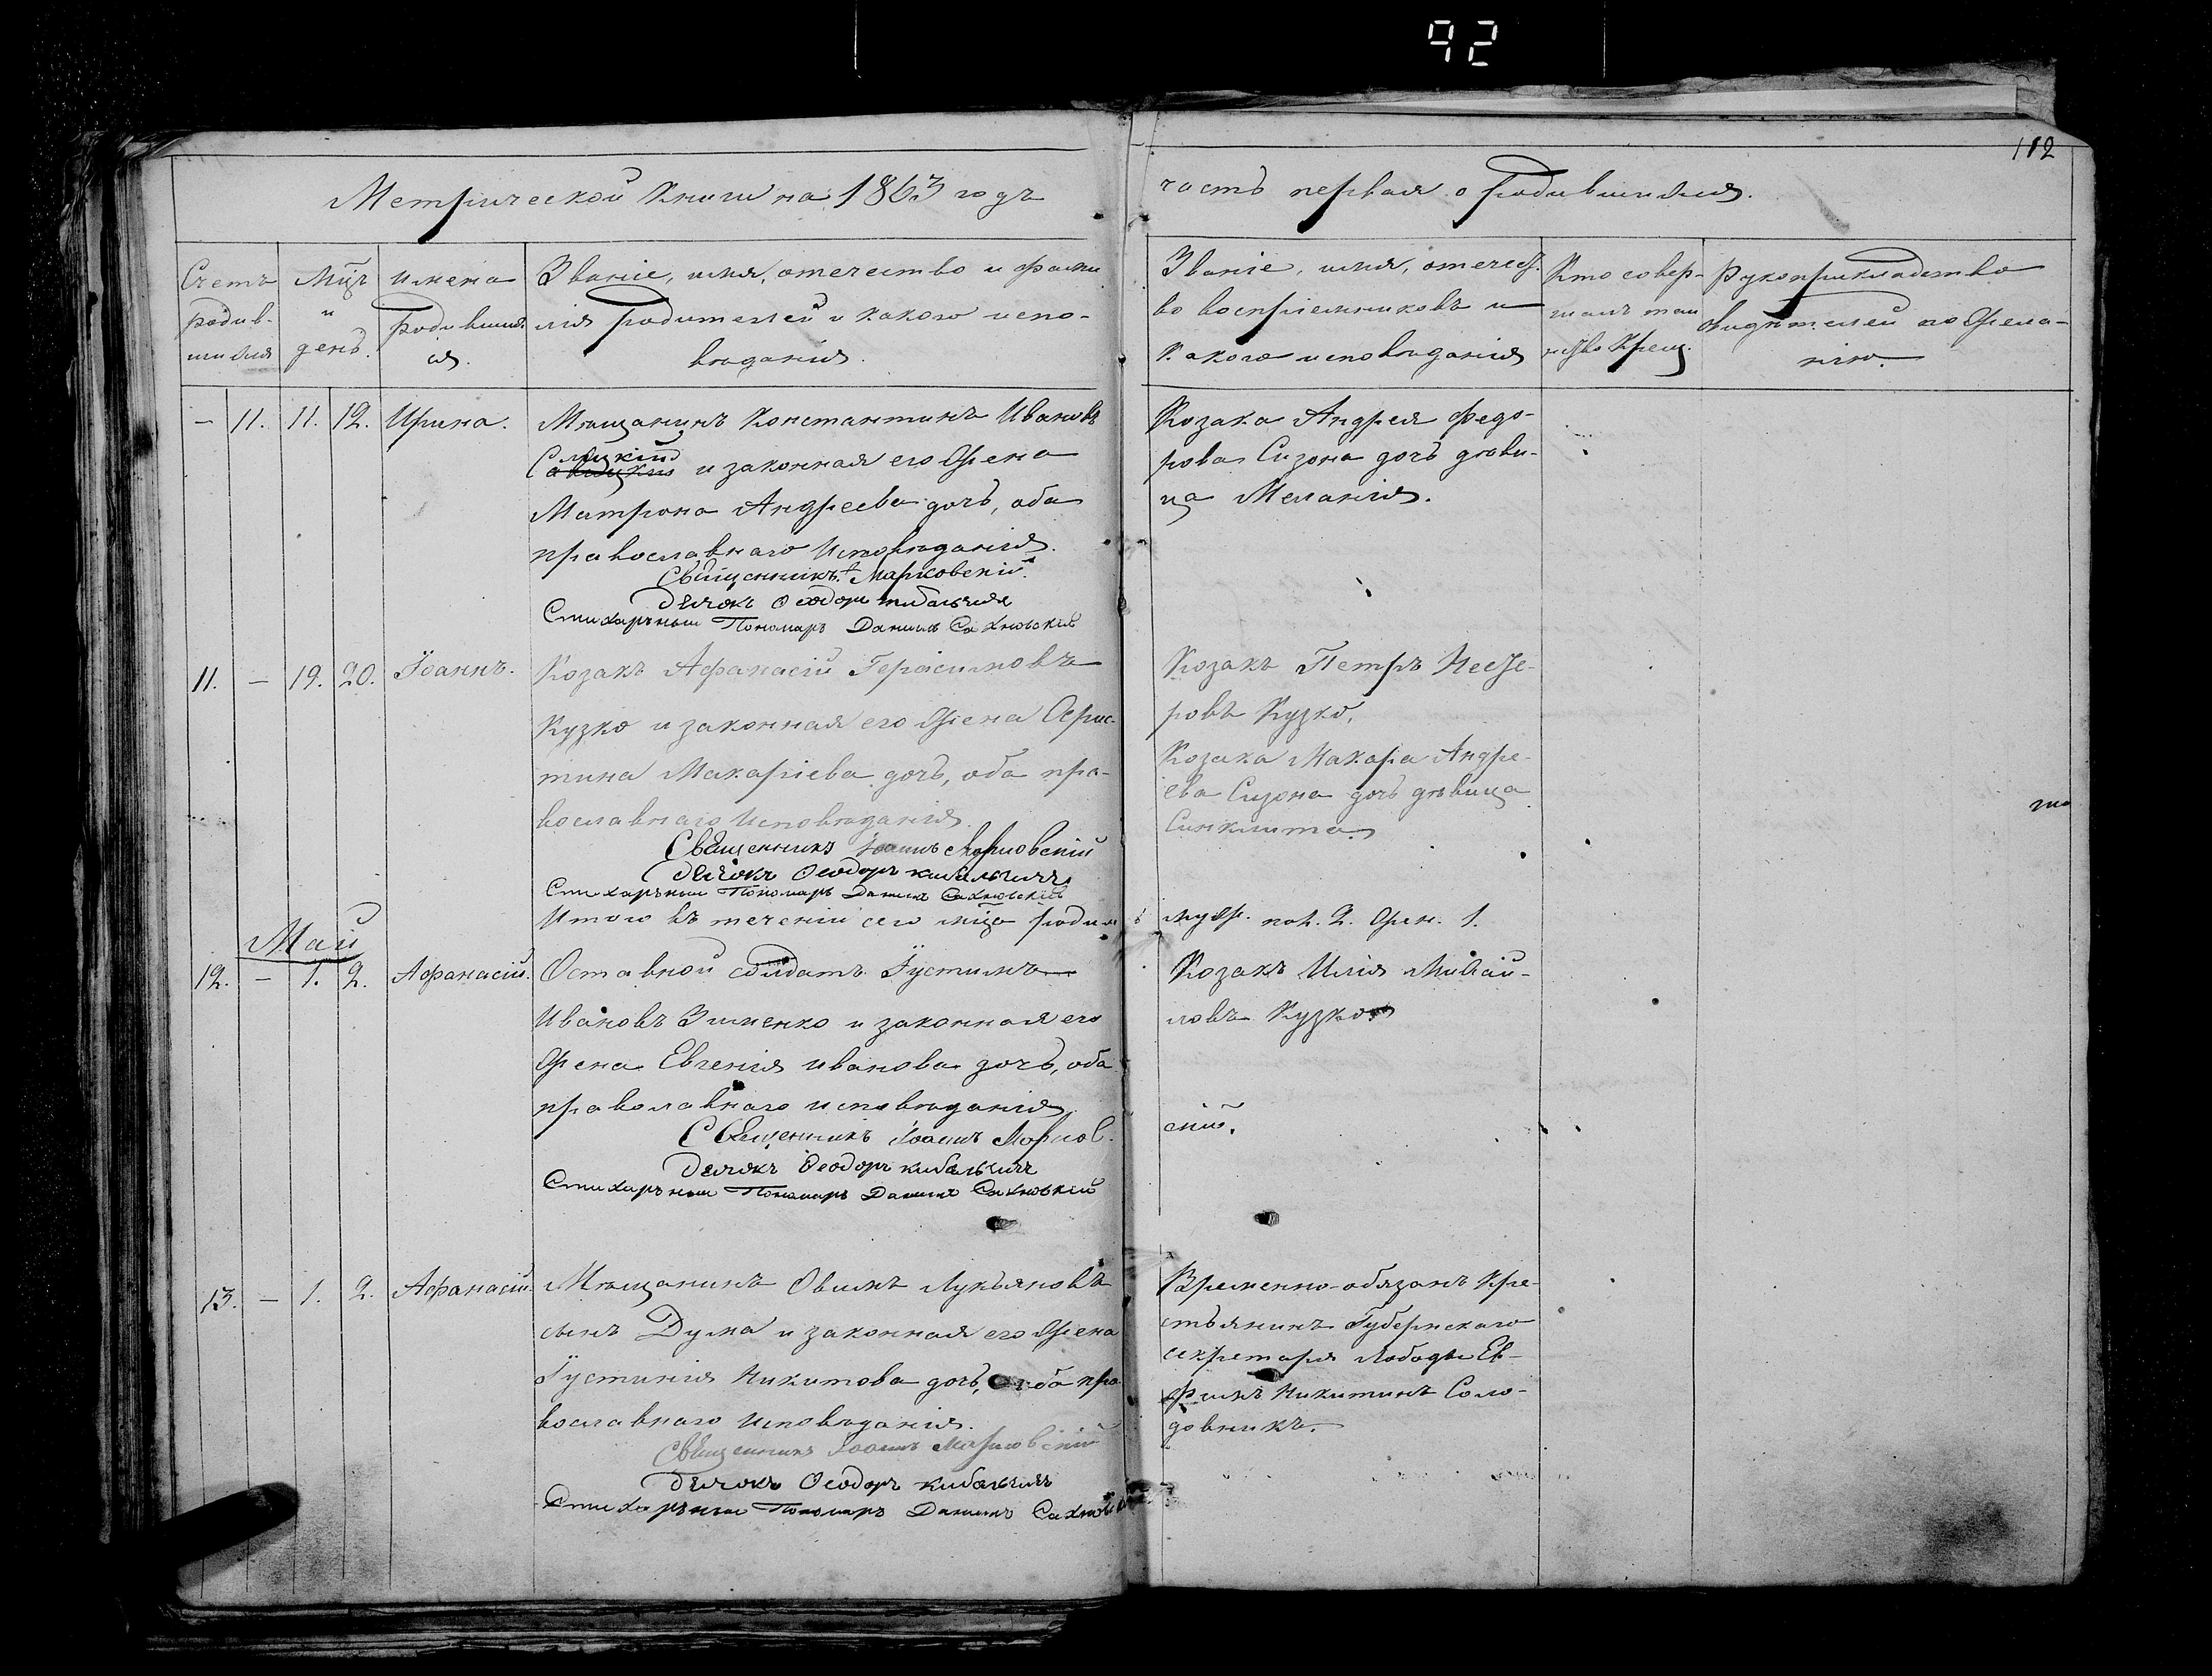 92
112
Метрической Книги на 1863 годъ
часть первая о родившихся.
Счетъ родив-шихся
Мцъ и день.
Имена родивших-ся.
Званіе, имя, отечество и фами-
лія родителей и какого испо-
вѣданія.
Званіе, имя, отечест-
во воспріемниковъ и
какого исповѣданія
Кто совер-
шалъ таи
нство Крещ.
Рукоприкладство
свидѣтелей по жела-
нію.
– 11. 11. 12. Ирина.
Мѣщанинъ Константинъ Ивановъ
Слуцкій и законная его жена
Матрона Андреева дочь, оба
православнаго исповѣданія.
Священникъ Марковскій.
Дячокъ Ѳеодоръ Кибальчичъ
Стихарный Пономарь Даніилъ Сахновскій
Козака Андрея Федо-
рова Сизона дочь дѣви-
ца Меланія.
11. – 19. 20. Іоаннъ.
Козакъ Афанасій Герасимовъ
Кузко и законная его жена
тина Макаріева дочь, оба пра-
вославнаго исповѣданія.
Священникъ Іоаннъ Марковскій
Дячокъ Ѳеодоръ Кибальчичъ
Стихарный Пономарь Даніилъ Сахновскій
Козакъ Петръ Несте-
ровъ Кузко,
Козака Макара Андре-
ева Сизона дочь дѣвица
Синклита.
Итого въ теченіи сего мца родил
муж. пол. 2. жен. 1.
Май
12. – 1. 2. Афанасій.
Оставной солдатъ Іустинъ
Ивановъ Зименко и законная его
жена Евгенія Иванова дочь, оба
православнаго исповѣданія
Священникъ Іоаннъ Марков-
скій.
Дячокъ Ѳеодоръ Кибальчичъ
Стихарный Пономарь Даніилъ Сахновскій
Козакъ Илія Михай-
ловъ Кузко
13. – 1. 2. Афанасій.
Мѣщанинъ Лукьяновъ
сынъ Дума и законная его жена
Іустинія Никитова дочь, оба пра-
вославнаго исповѣданія.
Священникъ Іоаннъ Марковскій
Дячокъ Ѳеодоръ Кибальчичъ
Стихарный Пономарь Даніилъ Сахновскій
Временно-обязанъ кре-
стьянинъ Губернскаго
секретаря Лободы Ев-
фимъ Никитинъ Соло-
довникъ.